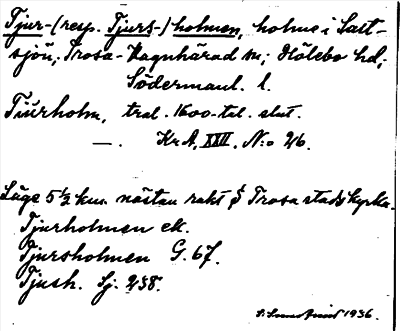 Tjur-(resp. Tjurs-)holmen, holme i Salt-
sjön; Trosa-Vagnhärad sn; Hölebo hd;
Södermanl. l.
Tiurholm, tral. 1600-tal. slut.
—. KrA. XXII. N:o 26.
Läge 5½ km. nästan rakt S Trosa stads kyrka.
Tjurholmen ek.
Tjursholmen G. 67.
Tjush. Sj. 238.
1936.